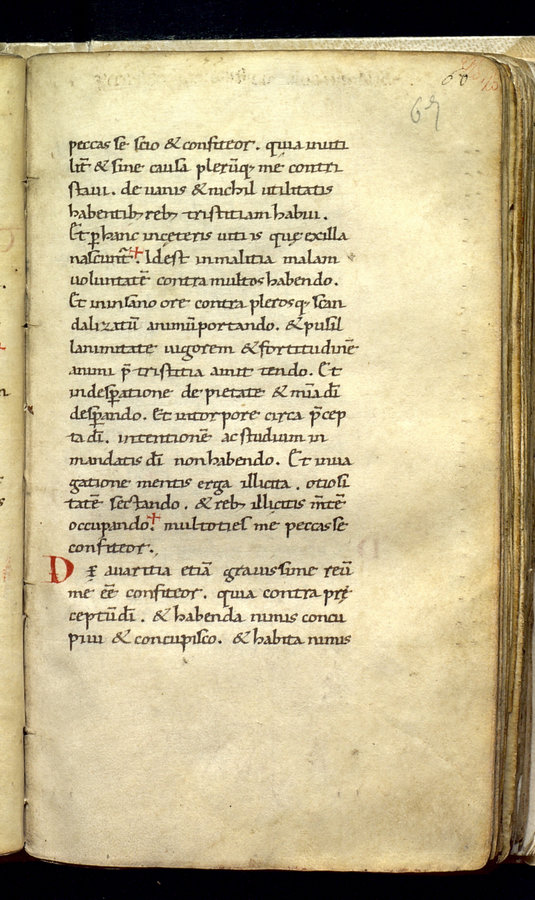 60
67
peccasse scio & confiteor. quia inuti
lit̄ & sine causa plerūq; me contri
staui. de uanis & nichil utilitatis
habentib; reb; tristitiam habui.
Et ꝑ hanc in ceteris uitiis quę ex illa
nascunt̄. Id est in malitia malam
uoluntatē contra multos habendo.
Et in insano ore contra plerosq; scan
dalizatū animū portando. & pusil
lanimitate uigorem & fortitudinē
animi p̄ tristitia amittendo. Et
in desꝑatione de pietate & mīa dī
desꝑando. Et in torpore circa p̄cep
ta dī. intentionē ac studium in
mandatis dī non habendo. Et in ua
gatione mentis erga illicita. otiosi
tatē sectando. & reb; illicitis m̄tē
occupando. multoties me peccasse
confiteor.
De auaritia etiā grauissime reū
me eē confiteor. quia contra prę
ceptū dī. & habenda nimis concu
piui & concupisco. & habita nimis